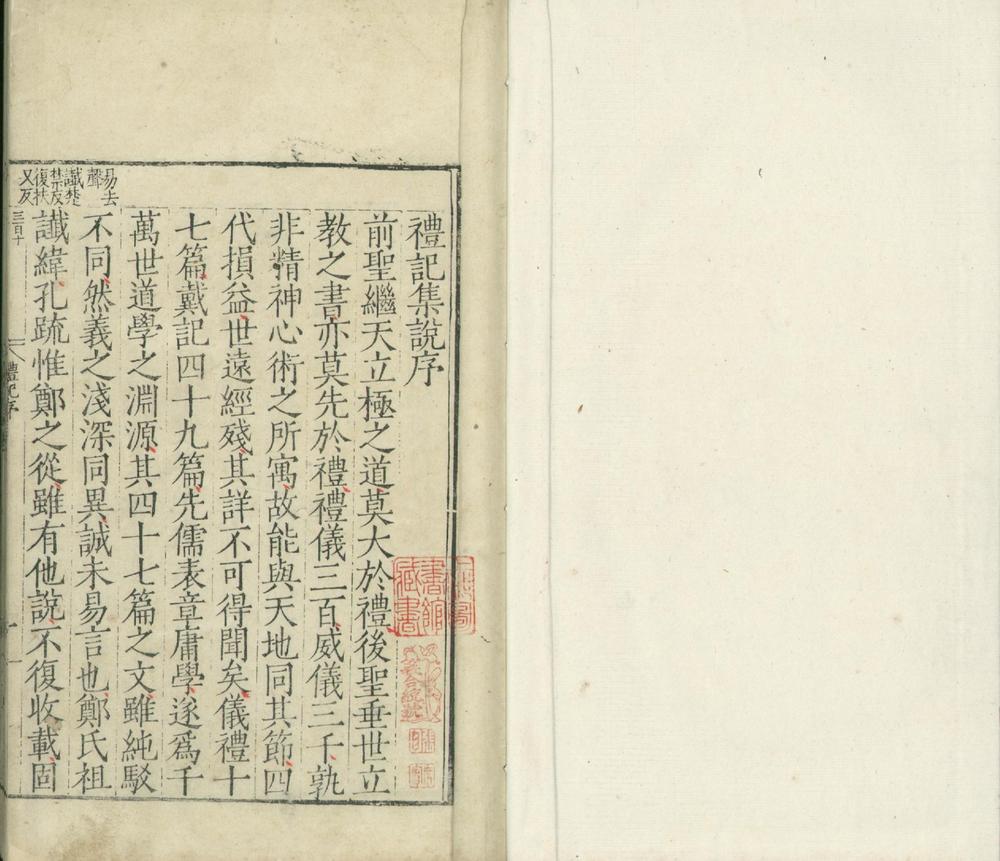 禮記集說序
前聖繼天立極之道莫大於禮後聖垂世立
教之書亦莫先於禮禮儀三百威儀三千孰
非精神心術之所寓故能與天地同其節四
代損益世遠經殘其詳不可得聞矣儀禮十
七篇戴記四十九篇先儒表章庸學遂爲千
萬世道學之淵源其四十七篇之文雖純駁
不同然義之淺深同異誠未易言也鄭氏祖
讖緯孔䟽惟鄭之從雖有他說不復收載固
易去
聲
讖楚
禁反
復扶
又反
三百十
禮記序
書館
藏書